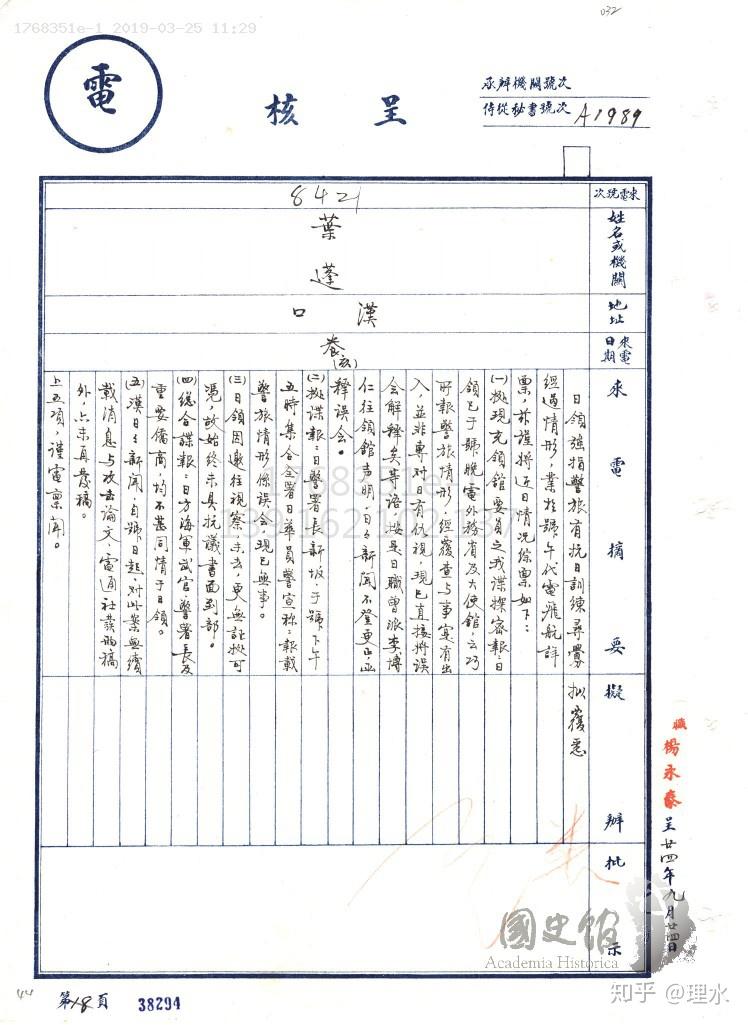 1768351e-1 2019-03-25 11:29
032
電
呈核
承辦機關號次
侍從秘書號次 A1989
來電號次
8421
姓名或機關
葉蓬
地址
漢口
來電日期
養(亥)
來電摘要
日領強指警旅有抗日訓練尋釁
經過情形，業於號午代電飛航詳
票，茲謹將近日情況條票如下：
(一)據現充領館要員之我諜探密報：日
領已于號晚電外務省及大使館，云巧
所報警旅情形，經覆查與事實有出
入，並非專對日有仇視，現已直接將誤
會解釋矣等語，按是日職曾派李博
仁往領館聲明，日日新聞不登更正函
釋誤會。
(二)據諜報：日警署長新坂，于號下午
五時集合全署日華員警宣称：報載
警旅情形係誤會，現已無事。
(三)日領因邀往視察未去，更無証據可
憑，故始終未具抗議書面到部。
(四)總合諜報：日方海軍武官，警署長及
重要僑商，均不甚同情于日領。
(五)漢日日新聞，自號日起，對此案無續
載消息與攻击論文，電通社發的稿
外，亦未再發稿。
上五項，謹電稟聞。
擬辦
拟覆悉
批示
職楊永泰呈 廿四年九月廿四日
1768351e
國史館
Academia Historica
44
第48頁
38294
知乎 @理水